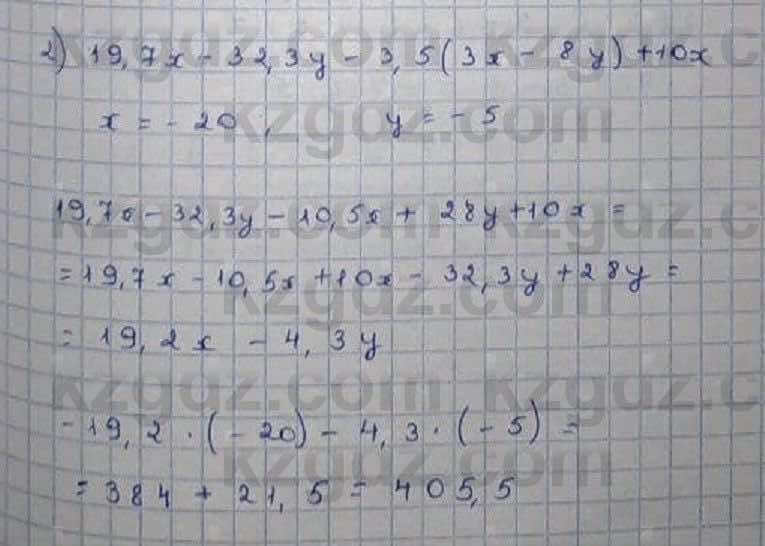 2) 19,7x - 32,3y - 3,5(3x - 8y) + 10x
x = - 20, y = - 5
19,7x - 32,3y - 10,5x + 28y + 10x =
= 19,7x - 10,5x + 10x - 32,3y + 28y =
= 19,2x - 4,3y
- 19,2 · (- 20) - 4,3 · (- 5) =
= 384 + 21,5 = 405,5